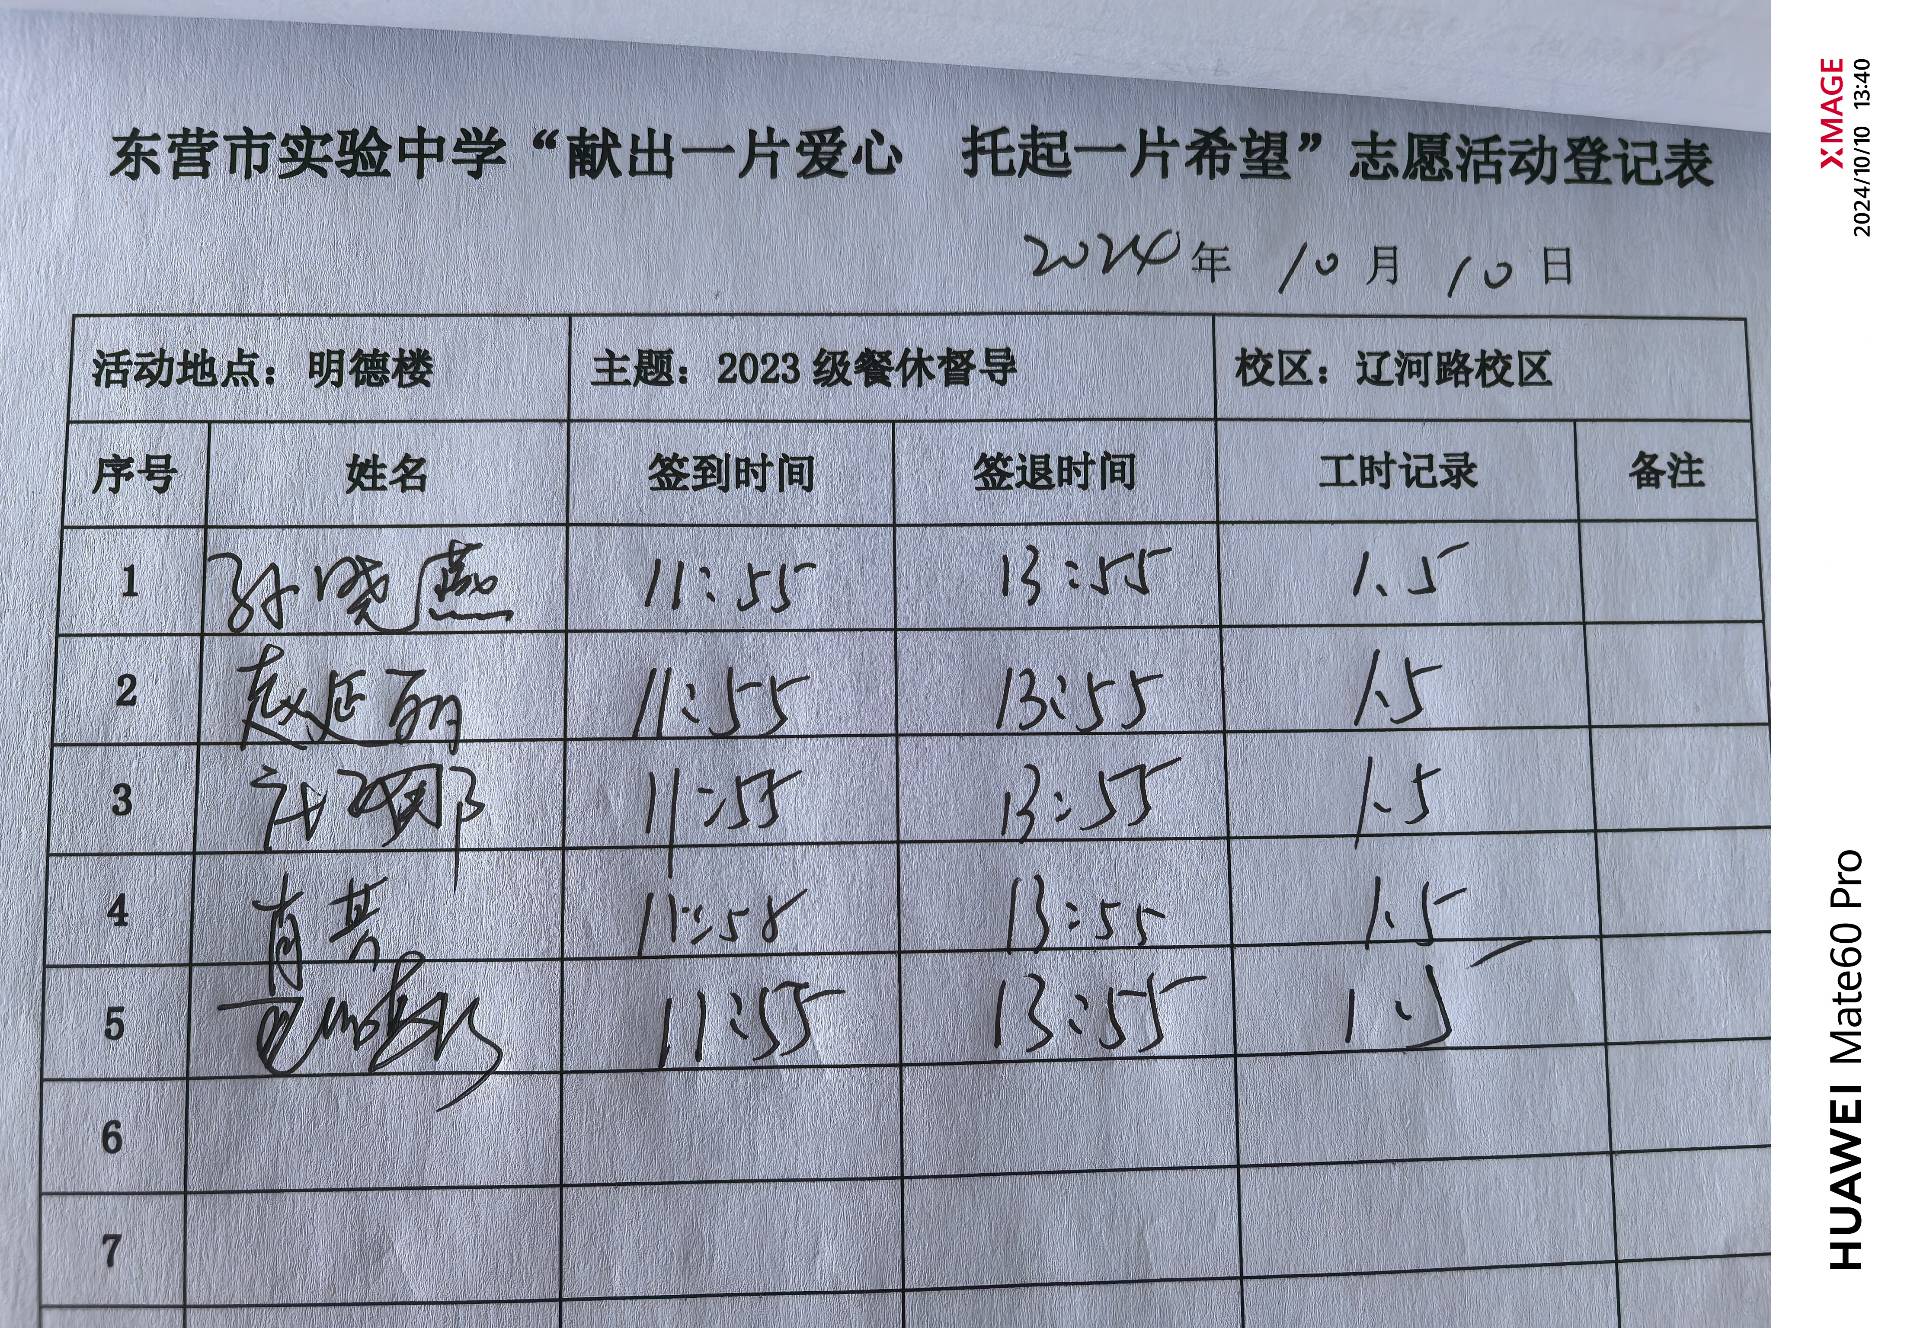 东营市实验中学“献出一片爱心 托起一片希望”志愿活动登记表
2024年 10月 10日
活动地点：明德楼 主题：2023级餐休督导 校区：辽河路校区
序号 姓名 签到时间 签退时间 工时记录 备注
1 孙晓燕 11:55 13:55 1.5
2 赵延丽 11:55 13:55 1.5
3 11:55 13:55 1.5
4 11:58 13:55 1.5
5 11:55 13:55 1.5
6
7
XMAGE
2024/10/10 13:40
HUAWEI Mate60 Pro